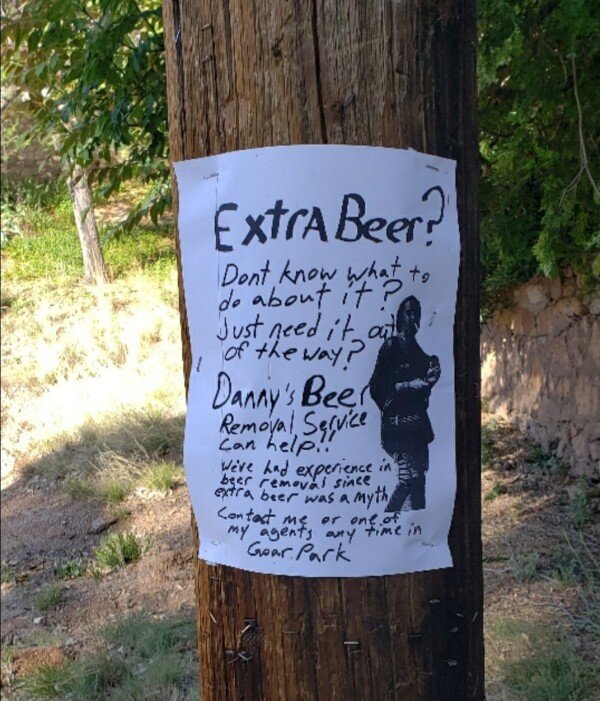 ExtrA Beer?
Dont know what to
do about it?
Just need it out
of the way?
Danny's Beer
Removal Service
can help!!
We've had experience in
beer removal since
extra beer was a myth
Contact me or one of
my agents any time in
Goar Park